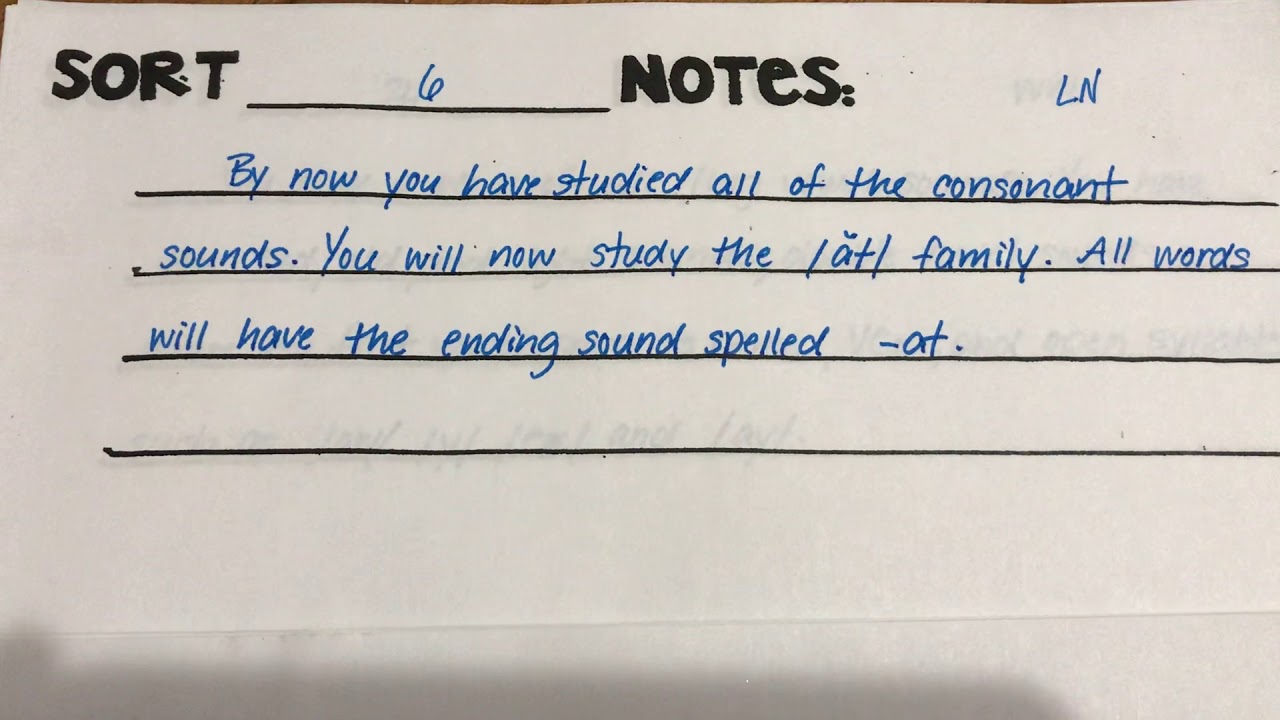 SORT 6 NOTES: LN
By now you have studied all of the consonant
sounds. You will now study the /ăt/ family. All words
will have the ending sound spelled -at.